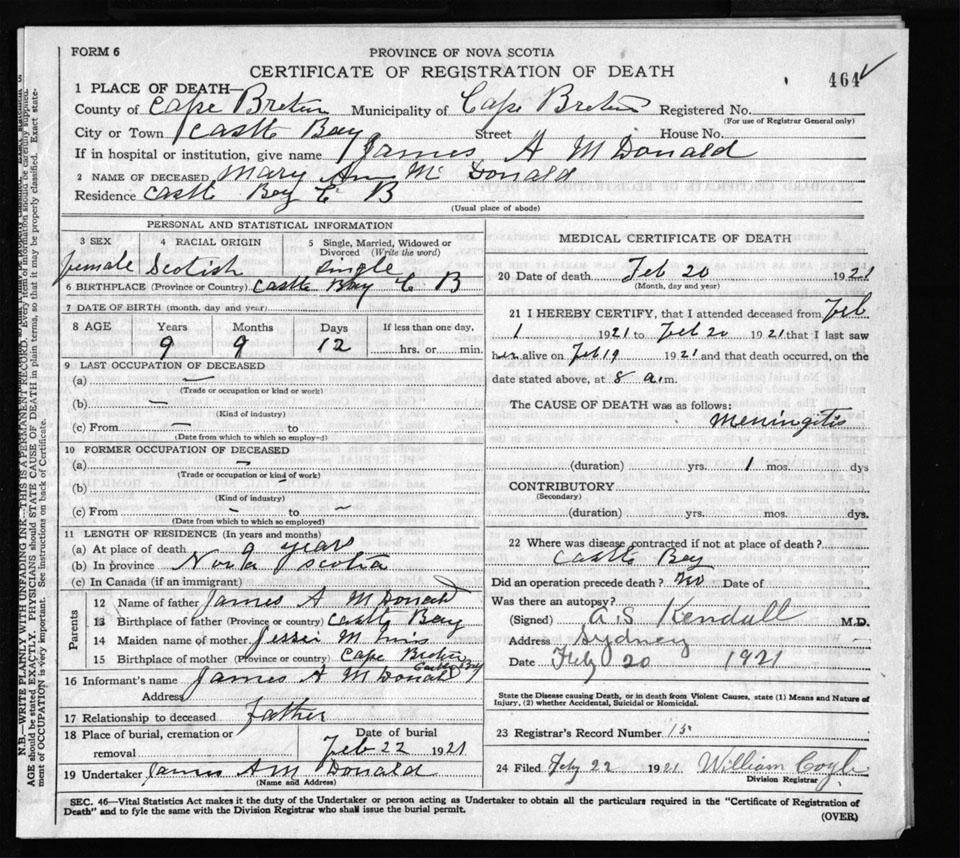 FORM 6
PROVINCE OF NOVA SCOTIA
CERTIFICATE OF REGISTRATION OF DEATH
464
1 PLACE OF DEATH—
County of Cape Breton Municipality of Cape Breton Registered No.
(For use of Registrar General only)
City or Town Castle Bay Street House No.
If in hospital or institution, give name James A McDonald
2 NAME OF DECEASED Mary Ann McDonald
Residence Castle Bay C B
(Usual place of abode)
PERSONAL AND STATISTICAL INFORMATION
3 SEX 4 RACIAL ORIGIN 5 Single, Married, Widowed or Divorced (Write the word)
female Scotish single
6 BIRTHPLACE (Province or Country) Castle Bay C B
7 DATE OF BIRTH (month, day and year)
8 AGE Years Months Days If less than one day,
9 9 12 hrs. or min.
9 LAST OCCUPATION OF DECEASED
(a) —
(Trade or occupation or kind or work)
(b) —
(Kind of industry)
(c) From — to
(Date from which to which so employed)
10 FORMER OCCUPATION OF DECEASED
(a) —
(Trade or occupation or kind of work)
(b) —
(Kind of industry)
(c) From — to —
(Date from which to which so employed)
11 LENGTH OF RESIDENCE (In years and months)
(a) At place of death 9 years
(b) In province Nova Scotia
(c) In Canada (if an immigrant)
Parents
12 Name of father James A McDonald
13 Birthplace of father (Province or country) Castle Bay
14 Maiden name of mother Jessie M
15 Birthplace of mother (Province or country) Cape Breton
Castle Bay
16 Informant's name James A McDonald
Address
17 Relationship to deceased father
18 Place of burial, cremation or removal Date of burial
Feb 22 1921
19 Undertaker James A McDonald
(Name and Address)
MEDICAL CERTIFICATE OF DEATH
20 Date of death Feb 20 1921
(Month, day and year)
21 I HEREBY CERTIFY, that I attended deceased from Feb
1 1921 to Feb 20 1921 that I last saw
her alive on Feb 19 1921 and that death occurred, on the
date stated above, at 8 a.m.
The CAUSE OF DEATH was as follows:
Meningitis
(duration) yrs. 1 mos. dys
CONTRIBUTORY
(Secondary)
(duration) yrs. mos. dys.
22 Where was disease contracted if not at place of death?
Castle Bay
Did an operation precede death? No Date of
Was there an autopsy?
(Signed) A.S. Kendall M.D.
Address Sydney
Date Feby 20 1921
State the Disease causing Death, or in death from Violent Causes, state (1) Means and Nature of
Injury, (2) whether Accidental, Suicidal or Homicidal.
23 Registrar's Record Number 15
24 Filed Feby 22 1921 William Coyle
Division Registrar
SEC. 46—Vital Statistics Act makes it the duty of the Undertaker or person acting as Undertaker to obtain all the particulars required in the "Certificate of Registration of
Death" and to fyle the same with the Division Registrar who shall issue the burial permit.
(OVER)
N.B.—WRITE PLAINLY WITH UNFADING INK—THIS IS A PERMANENT RECORD. Every item of information should be carefully supplied.
AGE should be stated EXACTLY. PHYSICIANS should STATE CAUSE OF DEATH in plain terms, so that it may be properly classified. Exact statement of OCCUPATION is very important. See instructions on back of Certificate.